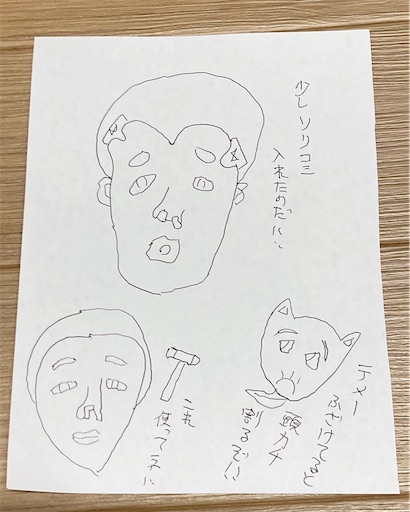 少しソリコミ
入れたのだ
テメー
ふざけてると
頭カチ
割るでい
これ
使ってネ